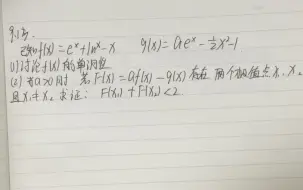 例3.
已知f(x)=eˣ+lnˣ-x g(x)=aeˣ-½x²-1
(1)讨论f(x)的单调性
(2)当a>0时 若F(x)=af(x)-g(x)存在两个极值点x₁,x₂
且x₁≠x₂ 求证: F(x₁)+F(x₂)<2